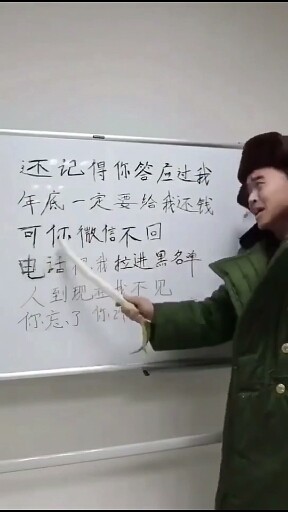 还记得你答后过我
年底一定要给我还钱
可你微信不回
电话把我拉进黑名单
人到现在找不见
你忘了你